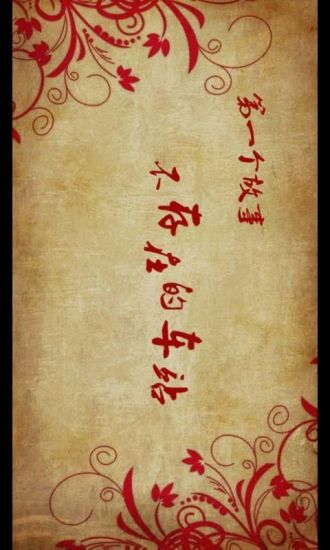 第一个故事
不存在的车站